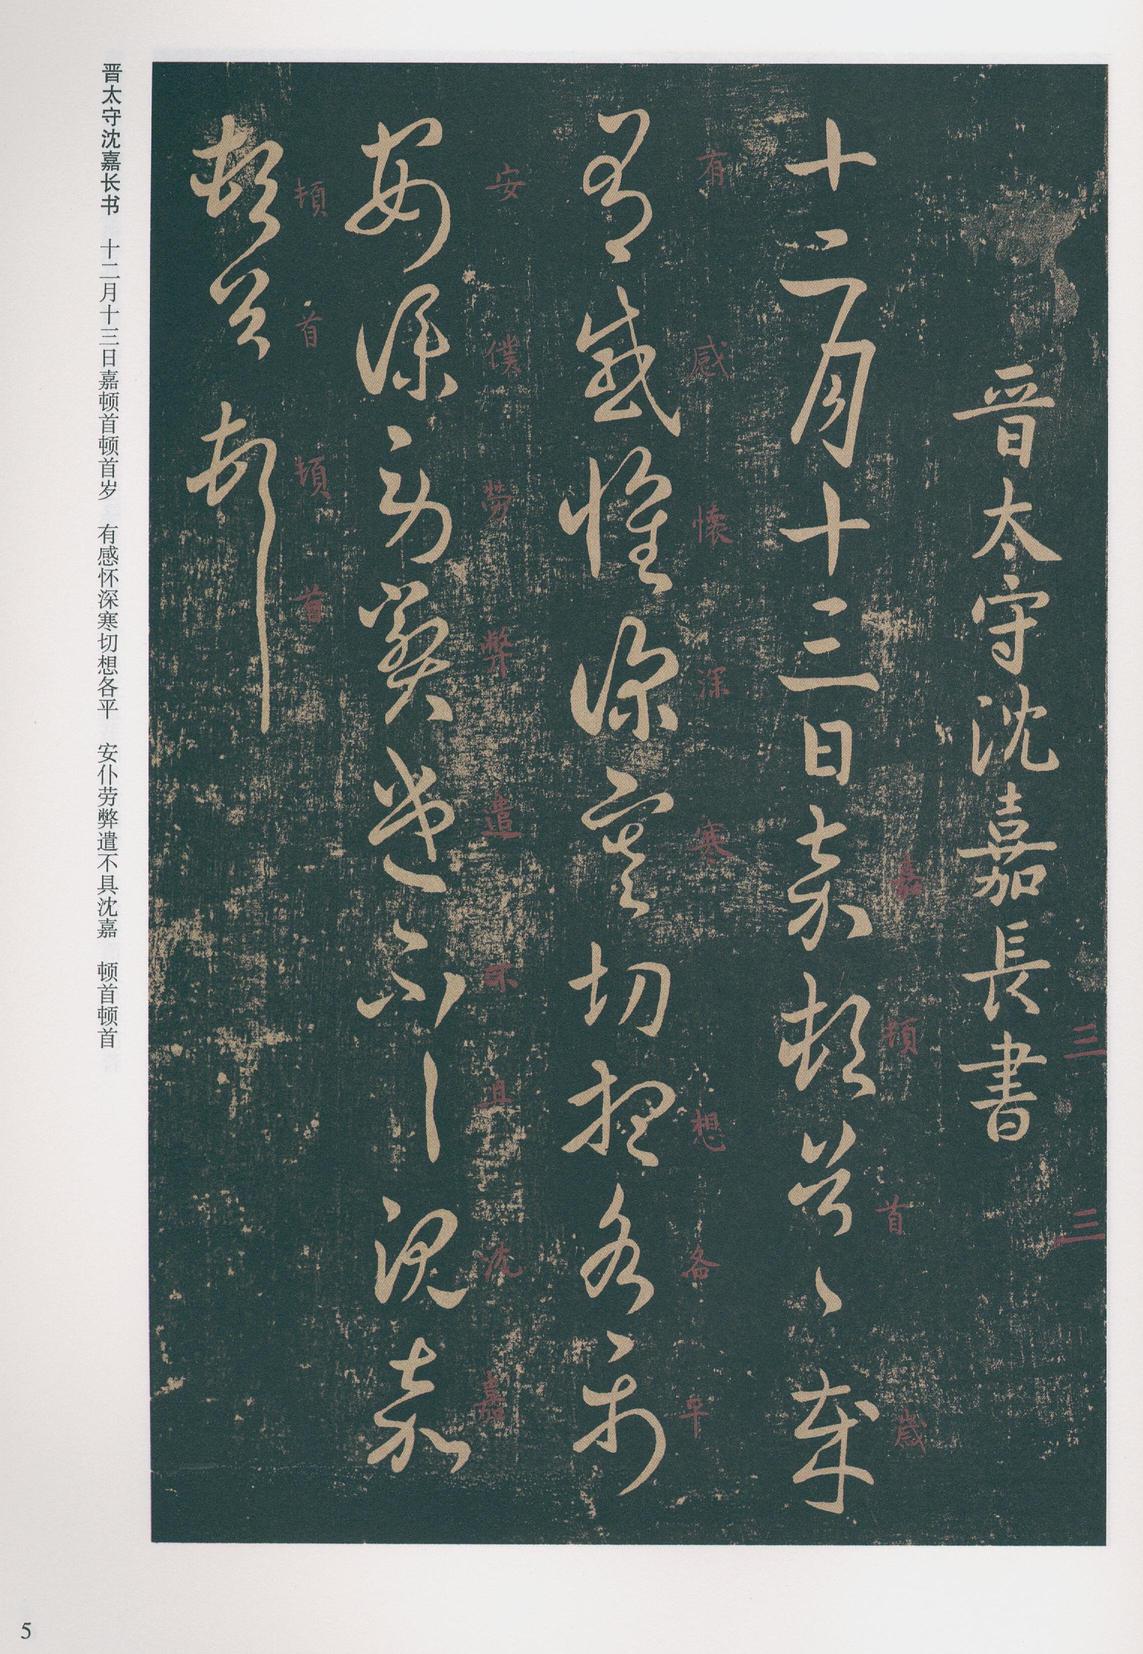 晋太守沈嘉長書
三
三
十二月十三日嘉頓首〻歲
嘉頓首歲
有感懷深寒切想各平
有感懷深寒想各平
安僕勞弊遣不具沈嘉
安僕勞弊遣不具沈嘉
頓首頓首
頓首頓首
晋太守沈嘉长书 十二月十三日嘉顿首顿首岁 有感怀深寒切想各平 安仆劳弊遣不具沈嘉 顿首顿首
5